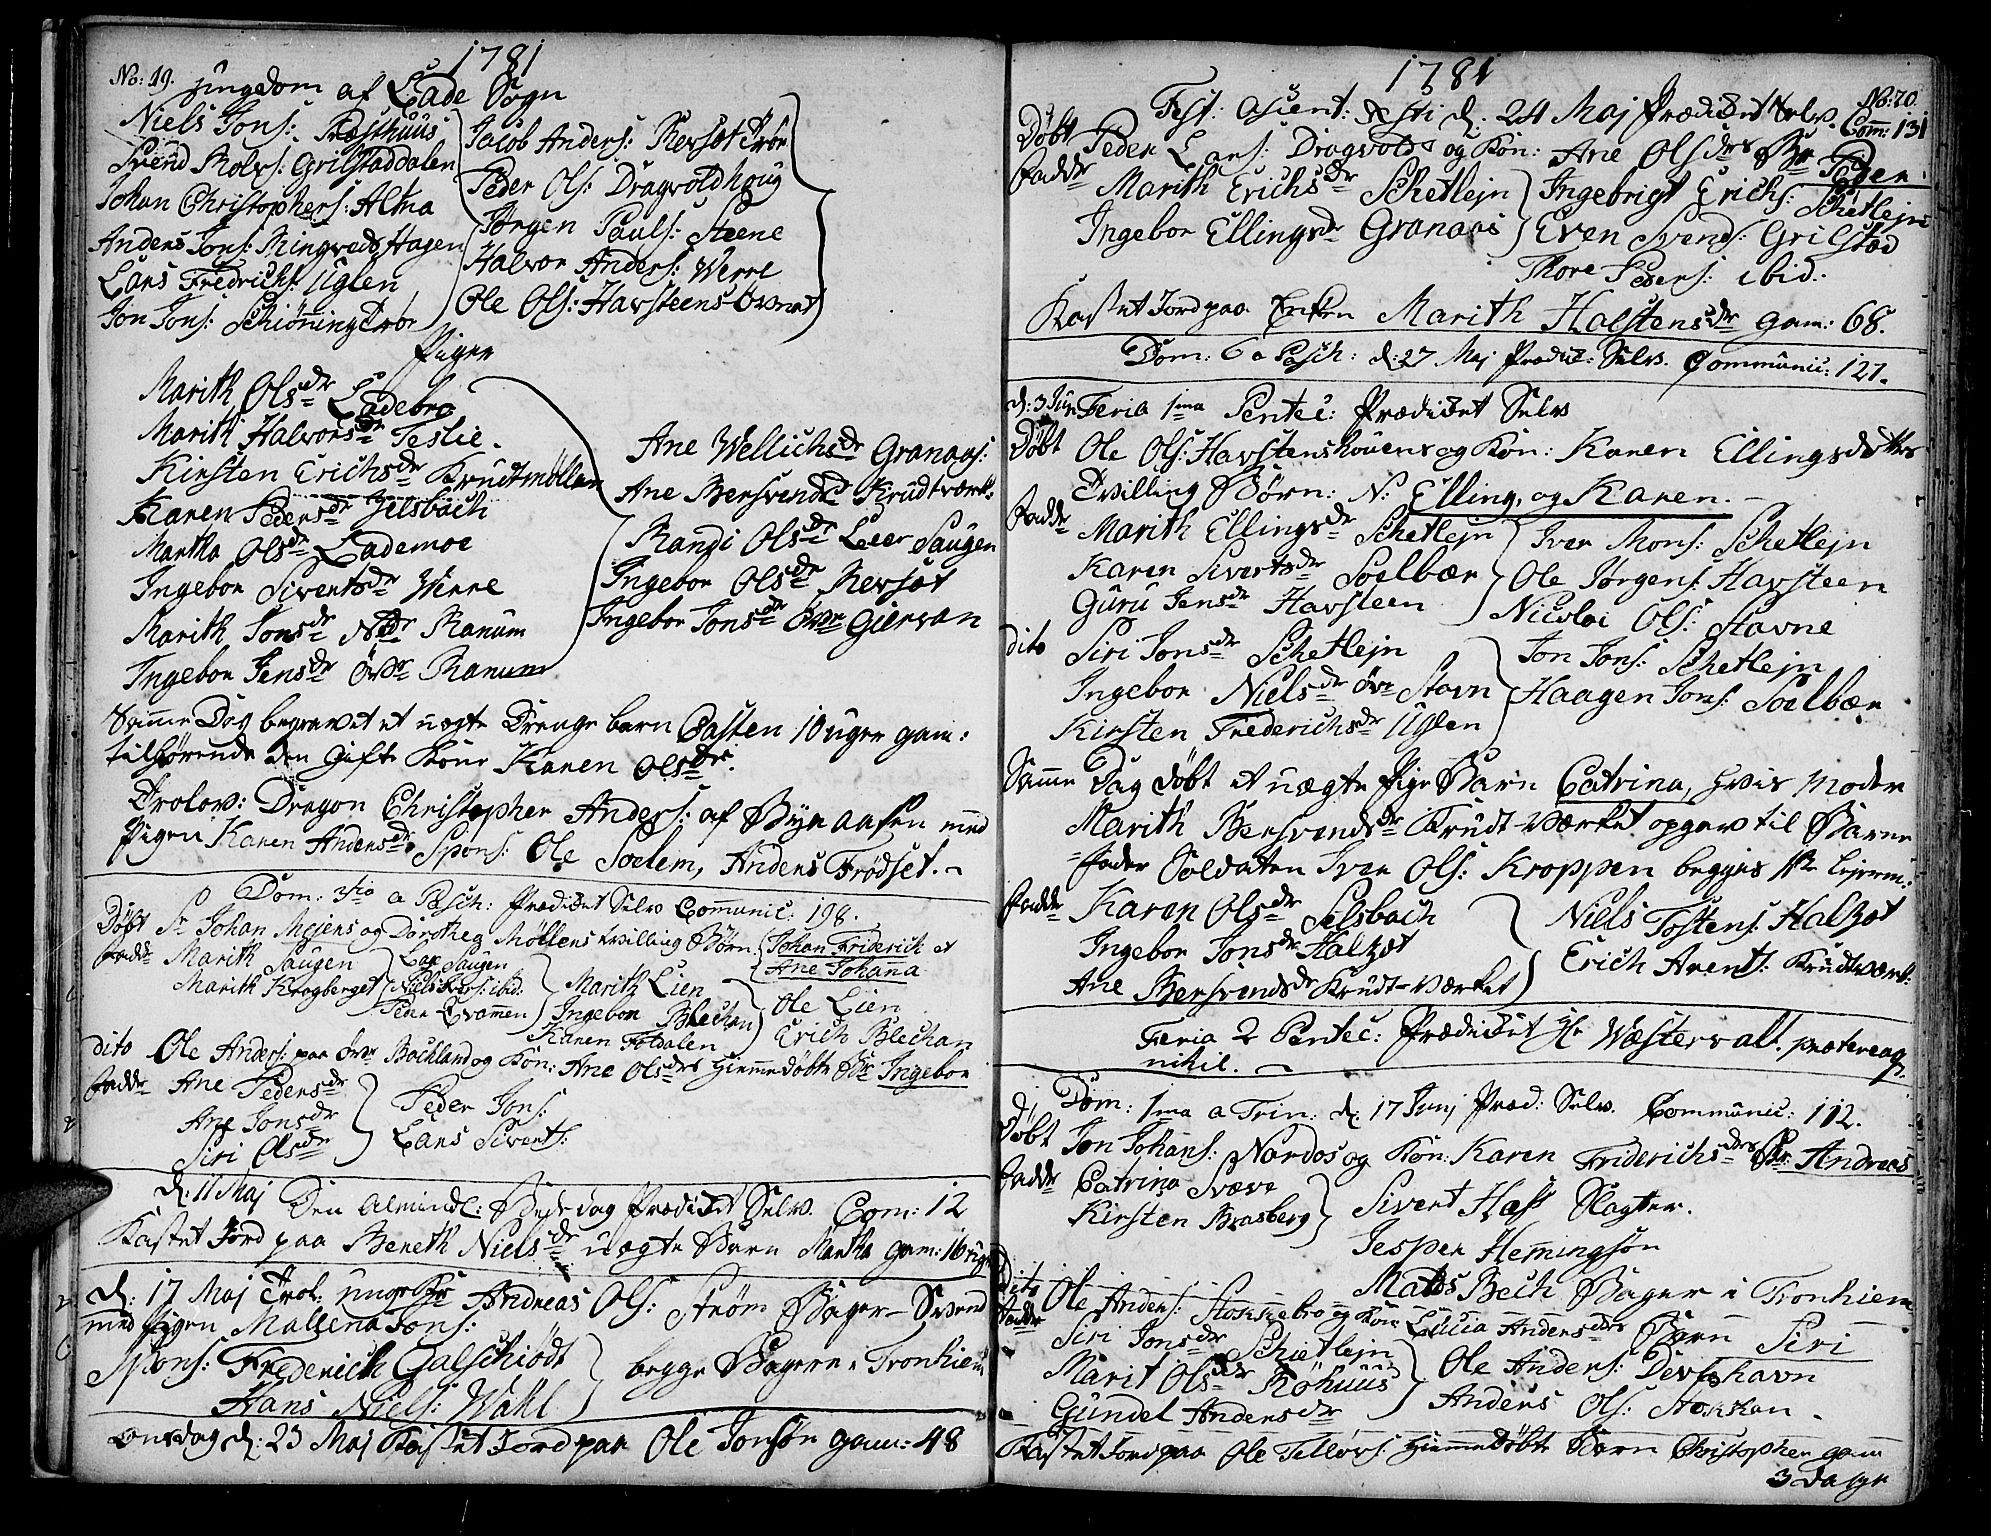 No: 19.
1781
ungdom af Lade Sogn
Niels Jons: Præsthuus
Svend Rolvs: Grilstaddalen
Johan Christophers: Alma
Anders Jons: Ringvedshagen
Lars Fredrichs: Uglen
Jon Jons: Schiønningtrøe
Jacob Anders: Revsettrøe
Peder Ols: Dragvoldhoug
Jørgen Pauls: Steene
Halvor Anders: Werre
Ole Ols: Havsteens-Øvnet
Piger
Marith Olsdr Ladebro
Marith Halvorsdr Teslie.
Kirsten Erichsdr Krudtmøllen
Karen Pedersdr Jelsbach
Martha Olsdr Lademoe
Ingebor Sivertsdr Werre
Marith Jonsdr Nedr Ranum
Ingebor Jensdr Øvdr Ranum
Ane Wellichsdr Granaas:
Ane Bersvendsdr Krudtværk:
Randi Olsdr Leer Saugen
Ingebor Olsdr Revsæt
Ingebor Jonsdr Øver Giervan
Samme Dag begravet et uægte Drenge barn Casten 10 uger gam:
tilhørende den Gifte Kone Karen Olsdr.
Trolov: Dragon Christopher Anders: af Bynaasen med
Pigen Karen Andersdr Spons: Ole Soelem, Anders Frødset.
Dom: 3tio a Pasch: Prædiket Selv Communic: 198.
Døbt Sr Johan Mejens og Dorothea Møllens tvilling Børn Johan Friderich et
Ane Johana
Fadr Marith Saugen
Marith Krogberget
Lars Saugen
Niels Lars: ibid:
Peder Svamen
Marith Lien
Ingebor Blechan
Karen Foldalen
Ole Lien
Erich Blechan
dito Ole Anders: paa Øvr Bochland og Kon: Ane Olsdrs Hiemmedøbte Br Ingebor
Fadr Ane Pedersdr
Ane Jonsdr
Siri Olsdr
Peder Jons:
Lars Sivert:
d: 11 Maj Den Almindl: Bededag Prædiket Selv. Com: 12
Kastet Jord paa Bereth Nielsdr uægte Barn Martha gam: 16 uger
d: 17 Maj Trol: ungKr Andreas Ols: Strøm Bager-Svend
med Pigen Mallena Jons:
Spons: Frederich Galschiødt
Hans Niels: Wahl
begge Bagere i Tronhiem
Onsdag d: 23 Maj Kastet Jord paa Ole Jonsøn gam: 48
1781
No: 20.
Fest: Ascent: Xsti d. 24 Maj Prædiket Selv. Com: 131
Døbt Peder Lars: Dragvolds og Kon: Ane Olsdrs Br Peder.
Fadr Marith Erichsdr Schetlejn
Ingebor Ellingsdr Granaas
Ingebrigt Erichs: Schetlejn
Even Svends: Grilstad
Thore Peders: ibid.
Kastet Jord paa Enken Marith Halstensdr gam: 68.
Dom: 6 a Pasch: d: 27 Maj Prædic: Selv. Communic: 127.
d: 3 Jun Feria 1ma Pentec: Prædiket Selv
Døbt Ole Ols: Havstenshouens og Kon: Karen Ellingsdatters
Tvilling Børn: N: Elling, og Karen.
Fadr Marith Ellingsdr Schetlejn
Karen Sivertsdr Soelbær
Guru Jensdr Havsteen
Iver Mons: Schetlejn
Ole Jørgens: Havsteen
Nicolai Ols: Stavne
dito Siri Jonsdr Schetlejn
Ingebor Nielsdr Øvr Stavn
Kirsten Frederichsdr Uglen
Jon Jons: Schetlejn
Haagen Jons: Soelbær
Samme Dag døbt et uægte Pige Barn Catrina, hvis Moder
Marith Bersvendsdr Krudt-Værket opgav til Barne
fader Soldaten Iver Ols: Kroppen begges 1te lejerm:
Fadr Karen Olsdr Selsbach
Ingebor Jonsdr Halset
Ane Bersvendsdr Krudt-værket
Niels Tostens: Halset
Erich Arents: Krudtværk:
Feria 2 Pentec: Prædiket Hr Wæsterwalt. prætereaq
nihil.
Dom: 1ma a Trin: d: 17 Junj Præd: Selv. Communic: 112.
Døbt Jon Johans: Nardos og Kon: Karen Friderichsdrs Br Andreas
Fadr Catrina Svæve
Kirsten Brasberg
Sivert Hass Slagter.
Jesper Hemingsøn
Mads Bech Bager i Tronhiem
dito Ole Anders: Stokkebro og Kon Lucia Andersdrs Barn Siri
Fadr Siri Jonsdr Schietlejn
Marit Olsdr Røhuus
Gundel Andersdr
Ole Anders: Devlehavn
Anders Ols: Stokkan
Kastet Jord paa Ole Tellevs: Hiemmedøbte Barn Christopher gam
3 dage